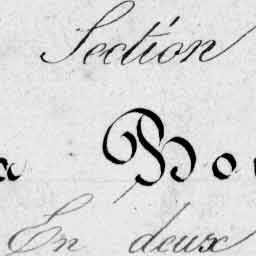 Section
a Bo
En deux